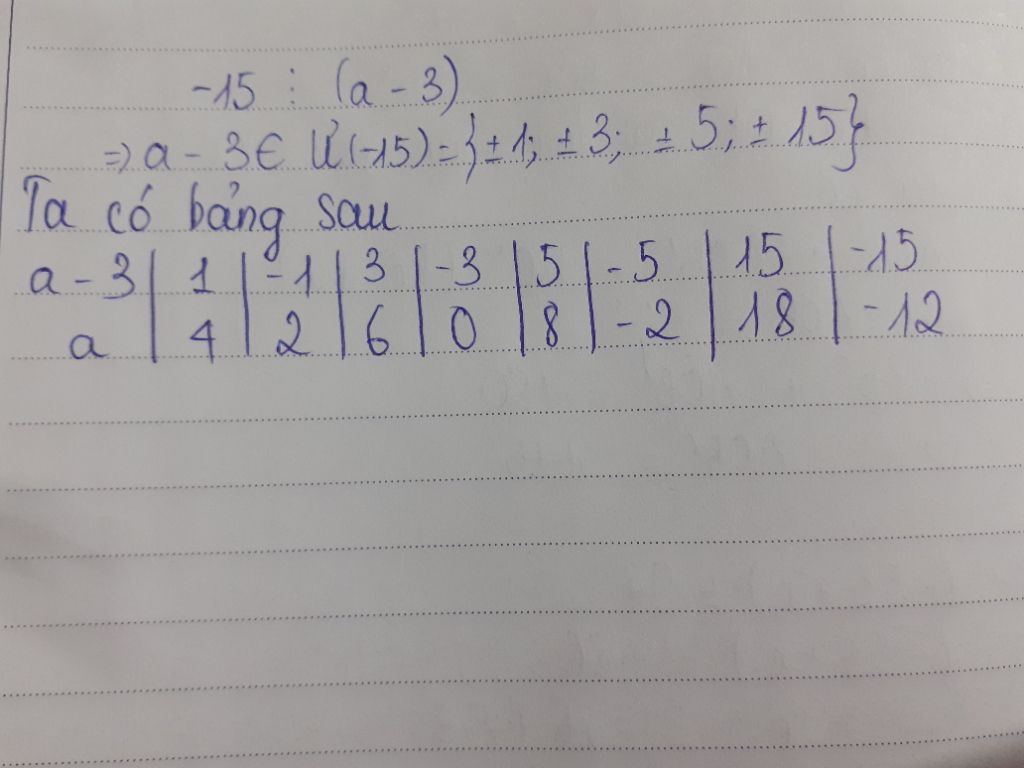 -15 ⋮ (a - 3)
⇒ a - 3 ∈ Ư(-15) = {±1; ±3; ±5; ±15}
Ta có bảng sau
a - 3 | 1 | -1 | 3 | -3 | 5 | -5 | 15 | -15
a | 4 | 2 | 6 | 0 | 8 | -2 | 18 | -12